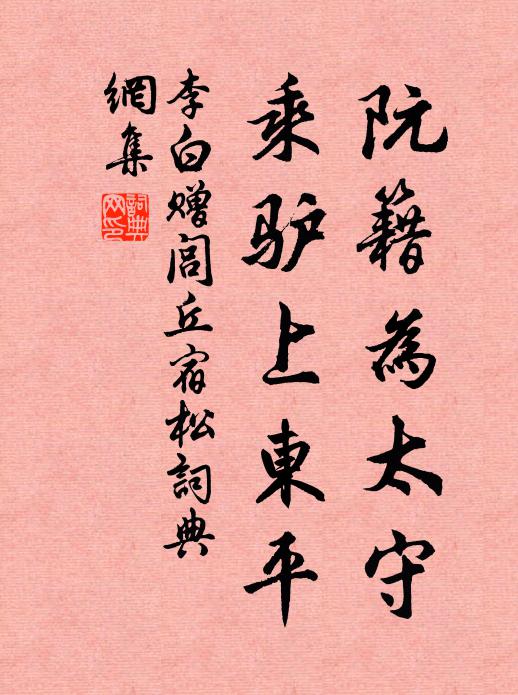 阮籍為太守
乘驴上東平
李白赠闾丘宿松詞典
網集
詞典
网印